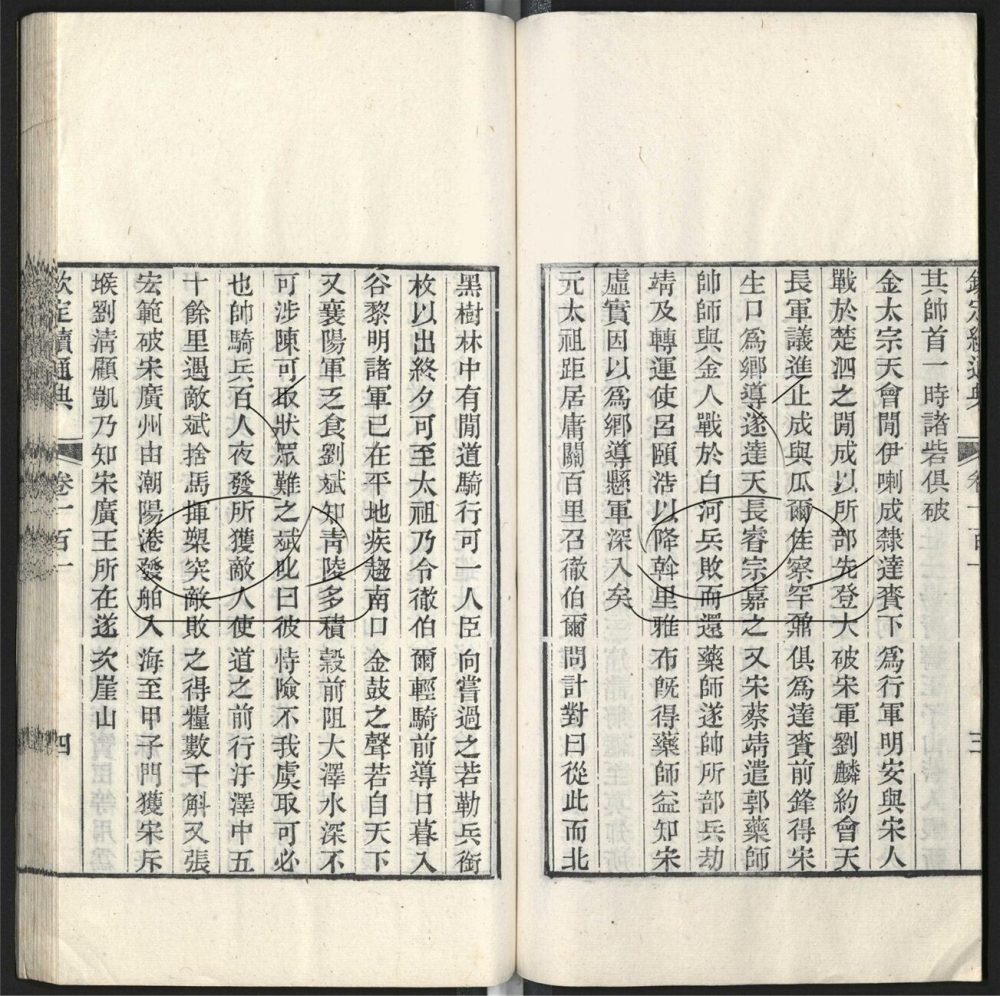 其帥首一時諸砦俱破
金太宗天會間伊喇成隸達賚下為行軍明安與宋人
戰於楚泗之間成以所部先登大破宋軍劉麟約會天
長軍議進止成與瓜爾佳察罕鼐俱為達賚前鋒得宋
生口為鄉導遂達天長睿宗嘉之又宋蔡靖遣郭藥師
帥師與金人戰於白河兵敗而還藥師遂帥所部兵劫
靖及轉運使呂頤浩以降斡里雅布既得藥師益知宋
虛實因以為鄉導懸軍深入矣
元太祖距居庸關百里召徹伯爾問計對曰從此而北
三
黑樹林中有閒道騎行可一人臣向嘗過之若勒兵銜
枚以出終夕可至太祖乃令徹伯爾輕騎前導日暮入
谷黎明諸軍已在平地疾趨南口金鼓之聲若自天下
又襄陽軍乏食劉斌知青陵多積穀前阻大澤水深不
可涉陳可取狀眾難之斌叱曰彼恃險不我虞取可必
也帥騎兵百人夜發所獲敵人使道之前行汙澤中五
十餘里遇敵斌捨馬揮槊突敵敗之得糧數千斛又張
宏範破宋廣州由潮陽港發舶入海至甲子門獲宋斥
堠劉清顧凱乃知宋廣王所在遂次崖山
欽定續通典 卷一百一 四